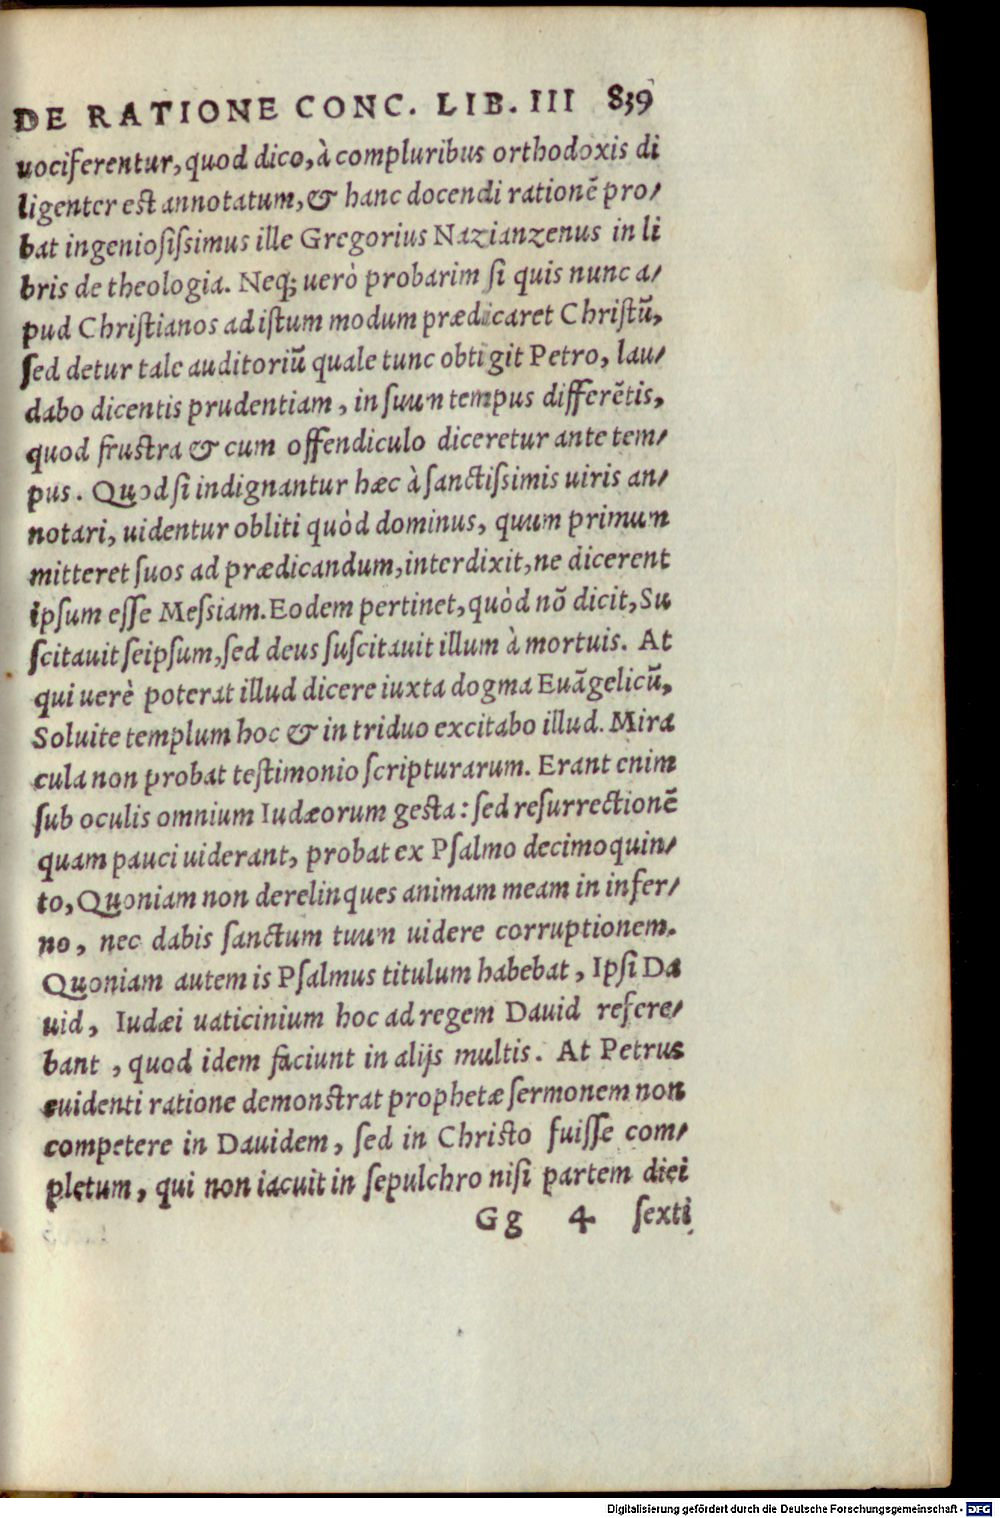 DE RATIONE CONC. LIB. III 839
uociferentur, quod dico, à compluribus orthodoxis di
ligenter est annotatum, & hanc docendi rationē pro/
bat ingeniosiſsimus ille Gregorius Nazianzenus in li
bris de theologia. Neq; uerò probarim ſi quis nunc a/
pud Chriſtianos ad iſtum modum prædicaret Chriſtū,
ſed detur tale auditoriū quale tunc obtigit Petro, lau/
dabo dicentis prudentiam, in ſuum tempus differētis,
quod fruſtra & cum offendiculo diceretur ante tem/
pus. Quod ſi indignantur hæc à ſanctiſsimis uiris an/
notari, uidentur obliti quòd dominus, quum primum
mitteret ſuos ad prædicandum, interdixit, ne dicerent
ipſum eſſe Meſsiam. Eodem pertinet, quòd nō dicit, Su
ſcitauit ſeipſum, ſed deus ſuſcitauit illum à mortuis. At
qui uerè poterat illud dicere iuxta dogma Euāgelicū,
Soluite templum hoc & in triduo excitabo illud. Mira
cula non probat teſtimonio ſcripturarum. Erant enim
ſub oculis omnium Iudæorum geſta: ſed reſurrectionē
quam pauci uiderant, probat ex Pſalmo decimoquin/
to, Quoniam non derelinques animam meam in infer/
no, nec dabis ſanctum tuum uidere corruptionem.
Quoniam autem is Pſalmus titulum habebat, Ipſi Da
uid, Iudæi uaticinium hoc ad regem Dauid refere/
bant, quod idem faciunt in alijs multis. At Petrus
euidenti ratione demonſtrat prophetæ ſermonem non
competere in Dauidem, ſed in Chriſto fuiſſe com/
pletum, qui non iacuit in ſepulchro niſi partem diei
Gg 4 ſexti
Digitalisierung gefördert durch die Deutsche Forschungsgemeinschaft - DFG